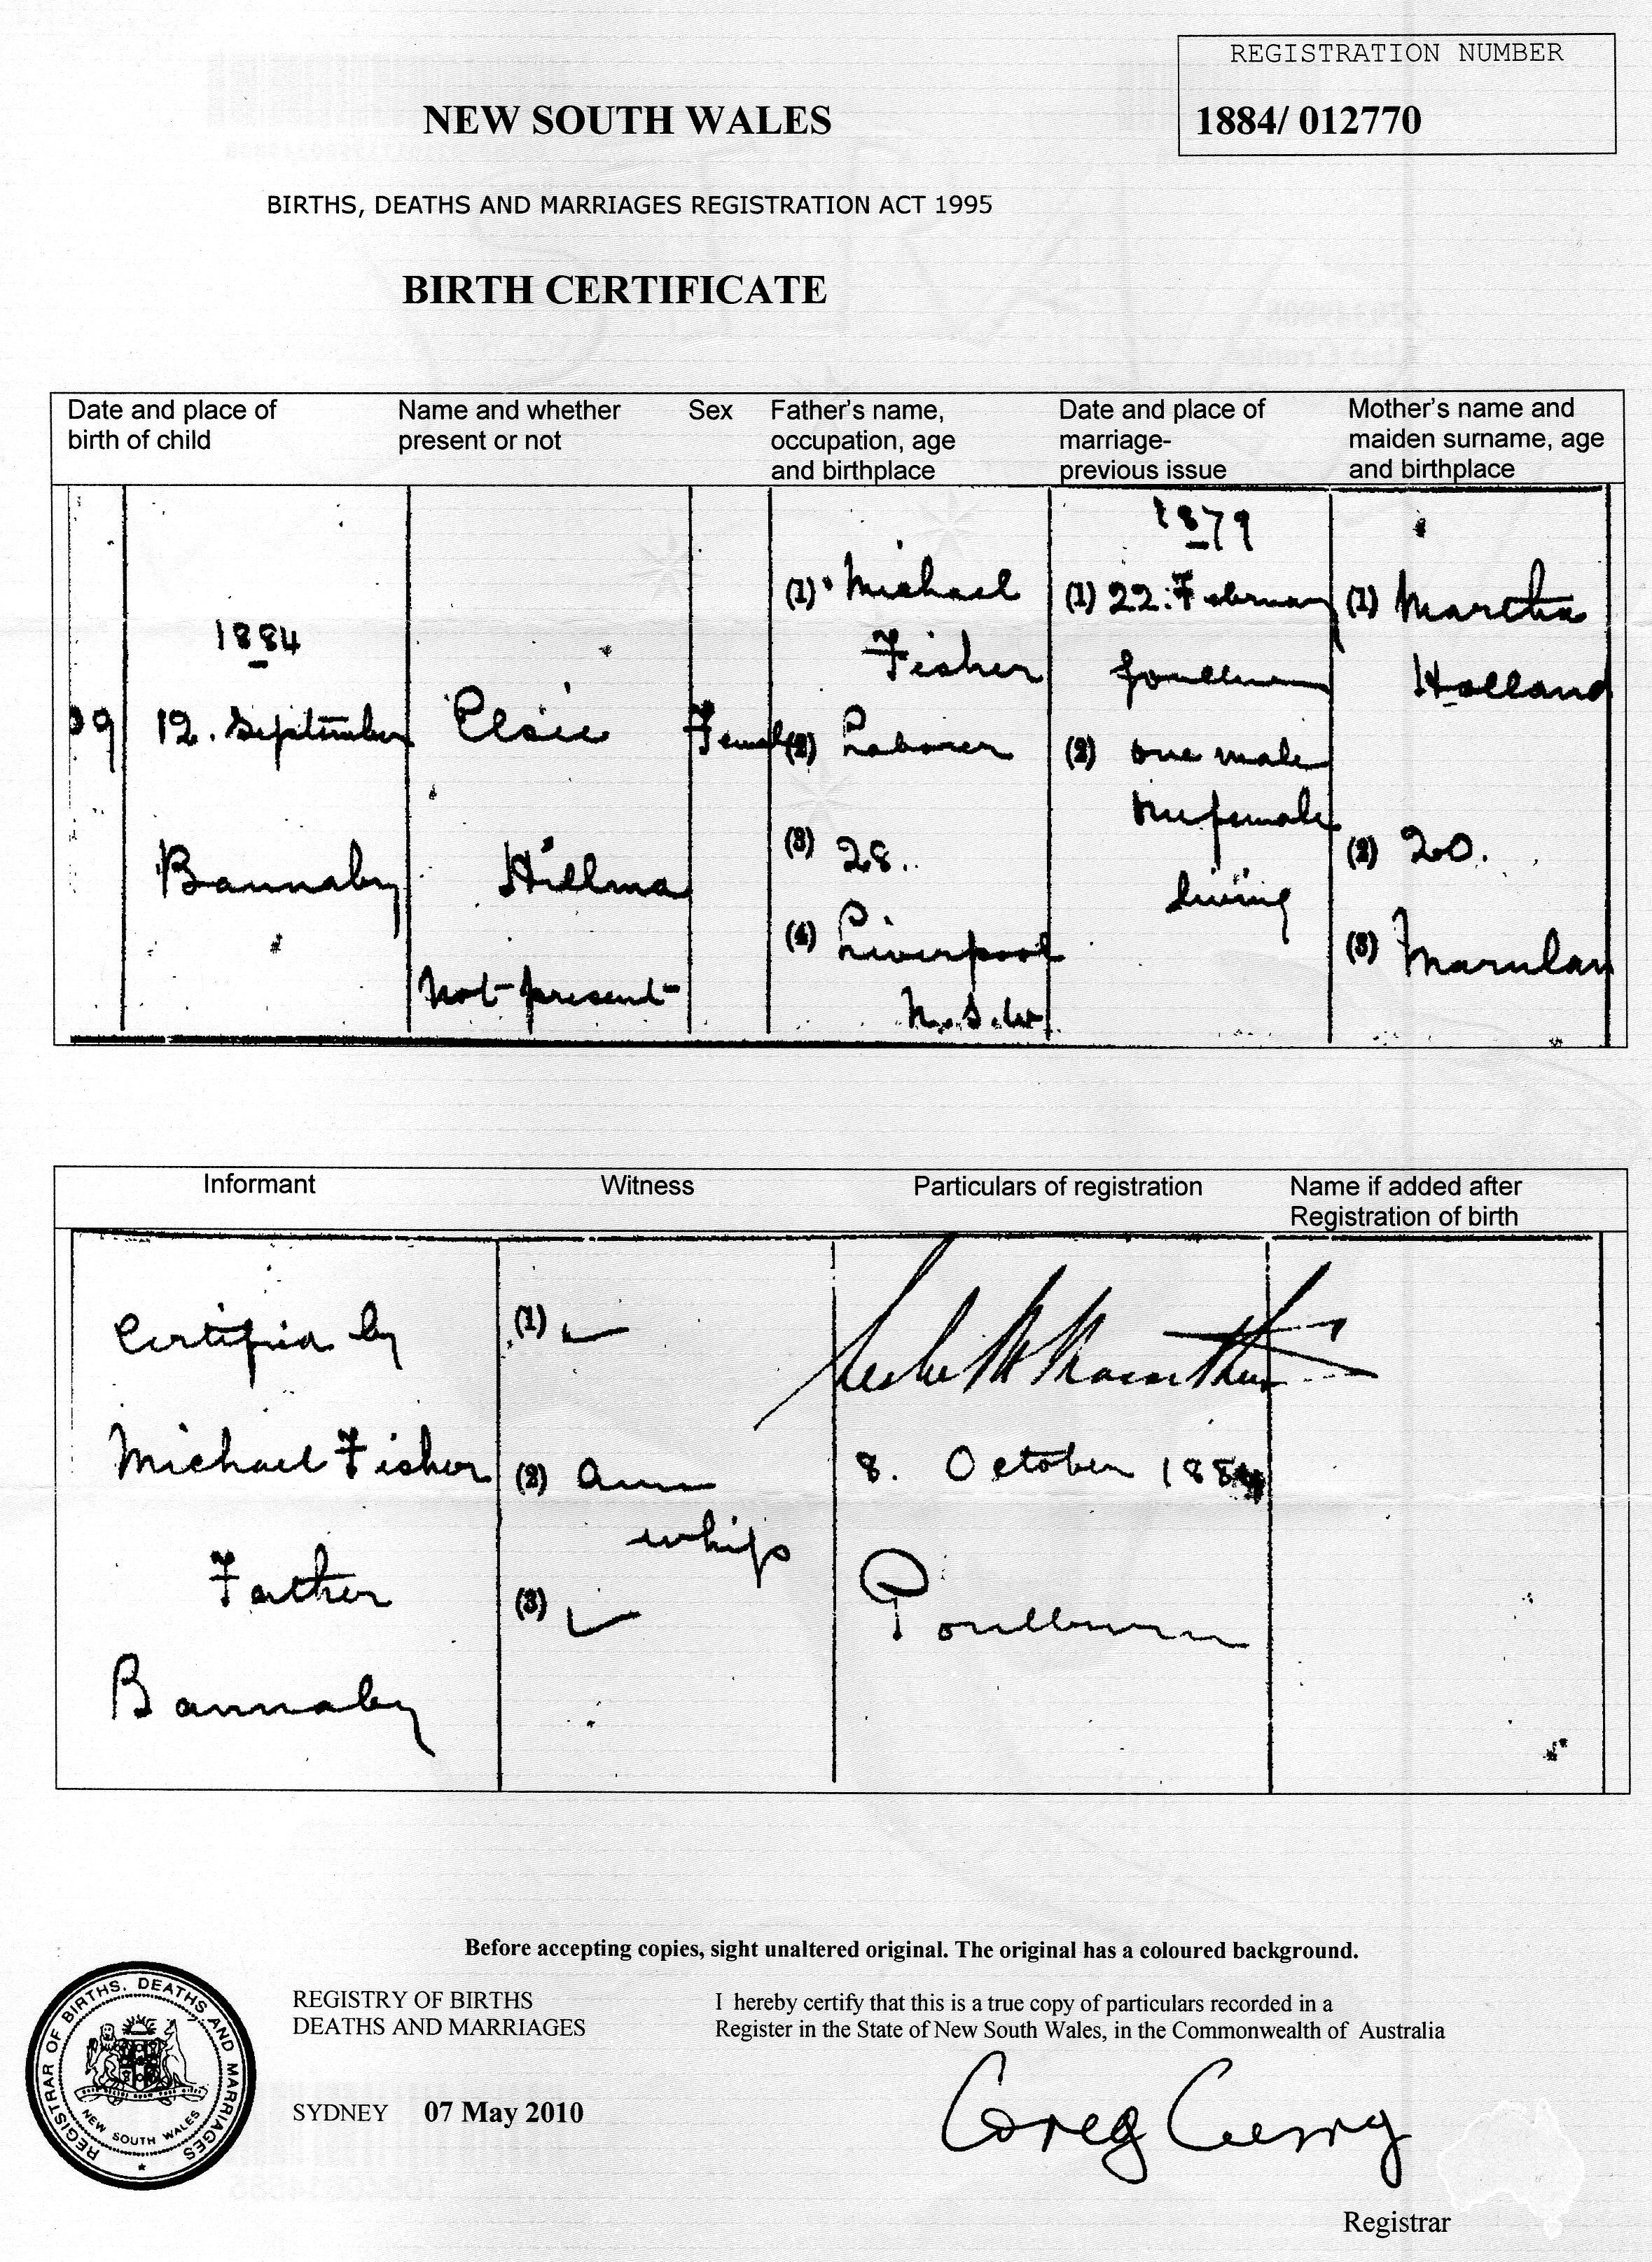 REGISTRATION NUMBER
1884/ 012770
NEW SOUTH WALES
BIRTHS, DEATHS AND MARRIAGES REGISTRATION ACT 1995
BIRTH CERTIFICATE
Date and place of
birth of child
Name and whether
present or not
Sex
Father's name,
occupation, age
and birthplace
Date and place of
marriage-
previous issue
Mother's name and
maiden surname, age
and birthplace
1884
12. September
Bannaby
Elsie
Hillma
Not present
Female
(1) Michael
Fisher
(2) Laborer
(3) 28.
(4) Liverpool
N.S.W
1879
(1) 22. February
Goulburn
(2) one male
female
living
(1) Martha
Holland
(2) 20.
(3) Marulan
Informant
Witness
Particulars of registration
Name if added after
Registration of birth
Certified by
Michael Fisher
Father
Bannaby
(1)
(2) Ann
whip
(3)
8. October 1884
Goulburn
Before accepting copies, sight unaltered original. The original has a coloured background.
REGISTRAR OF BIRTHS, DEATHS AND MARRIAGES
NEW SOUTH WALES
REGISTRY OF BIRTHS
DEATHS AND MARRIAGES
SYDNEY 07 May 2010
I hereby certify that this is a true copy of particulars recorded in a
Register in the State of New South Wales, in the Commonwealth of Australia
Greg Curry
Registrar